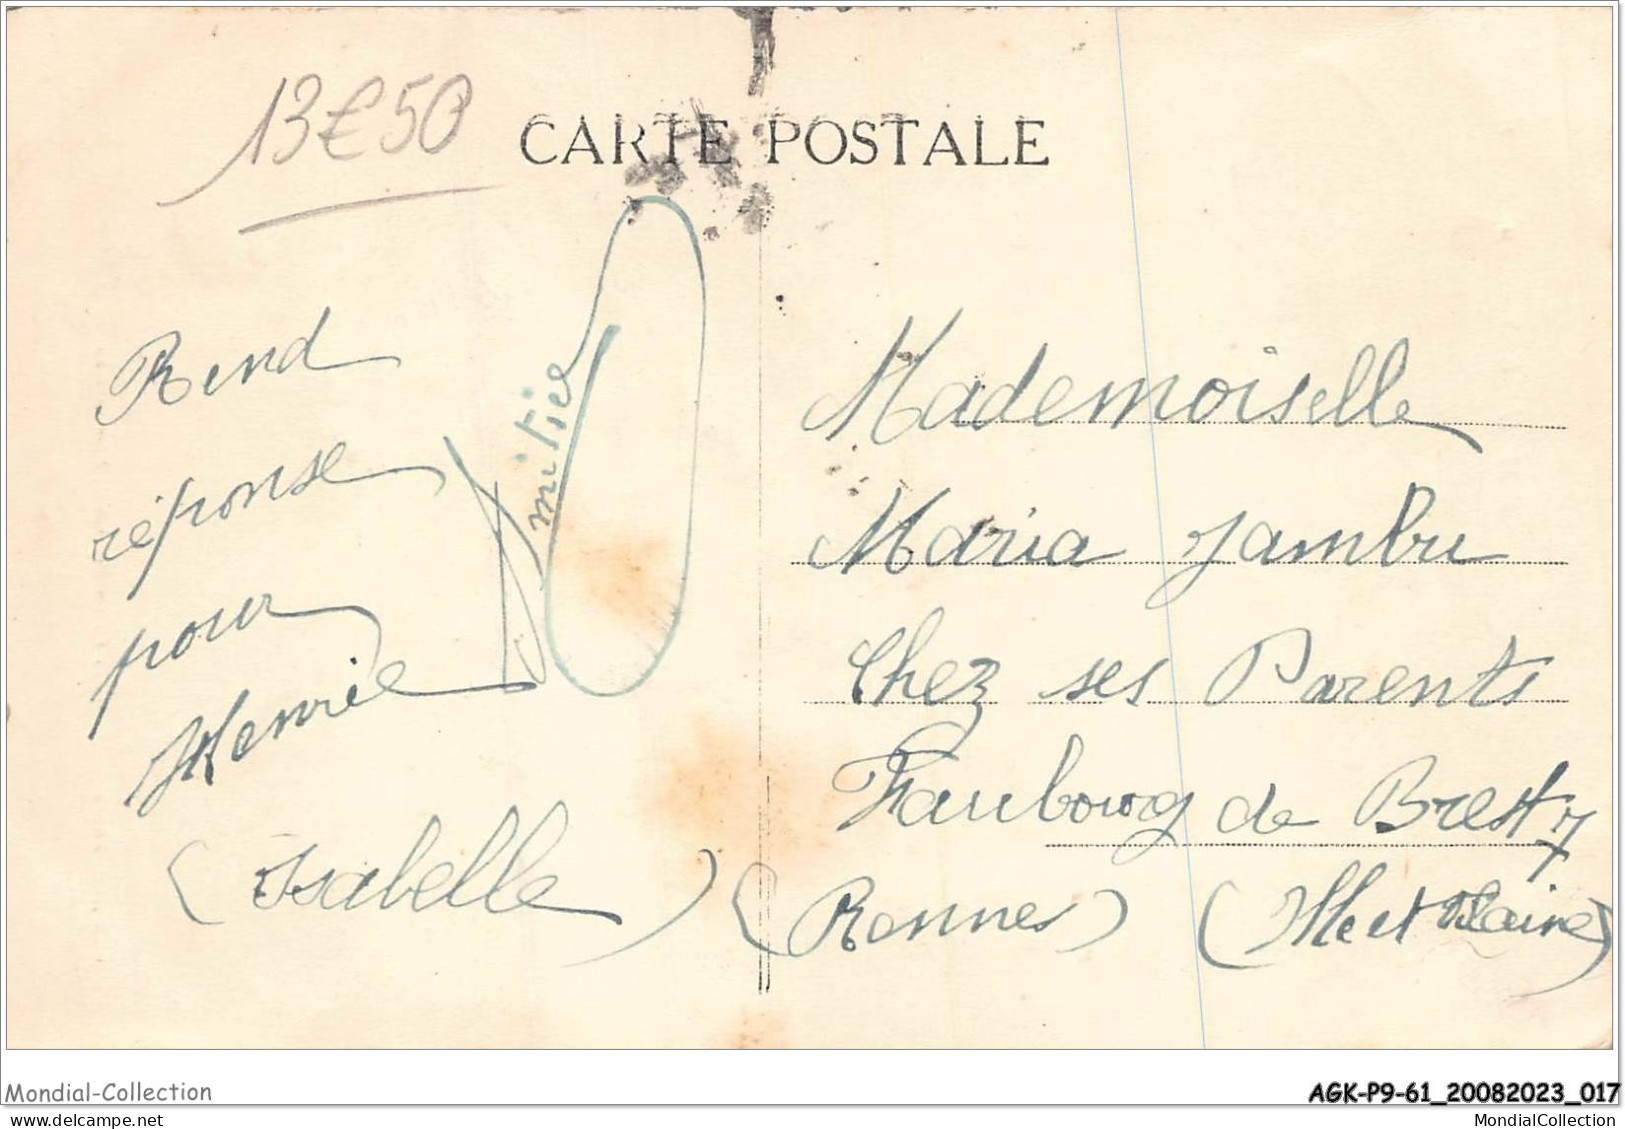 13€50
CARTE POSTALE
Rend
réponse
pour
Amitiée
(Isabelle)
Mademoiselle
Maria Jambu
Chez ses Parents
Faubourg de Brest 7
(Rennes) (Ille et Vilaine)
Mondial-Collection
AGK-P9-61_20082023_017
MondialCollection
MondialCollection